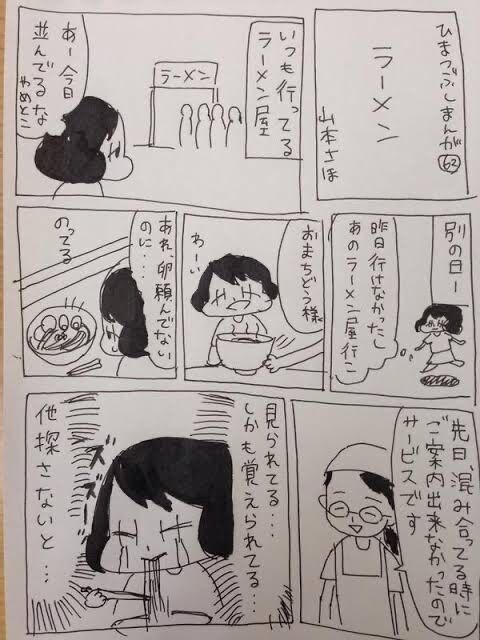 ひまつぶしまんが62
ラーメン
山本さほ
いつも行ってる
ラーメン屋
ラーメン
あー今日
並んでるな
やめとこ
別の日ー
昨日行けなかったし
あのラーメン屋行こ
おまちどう様
わーい
あれ、卵頼んでない
のに・・・
のってる
先日、混み合ってる時に
ご案内出来なかったので
サービスです
見られてる・・・
しかも覚えられてる・・・
ズズ
他探さないと・・・